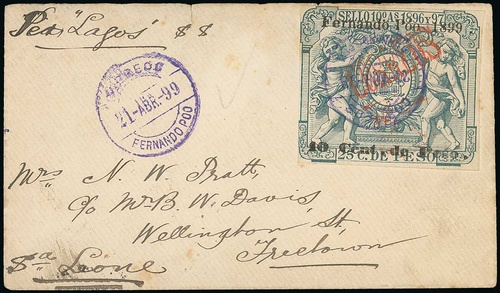 Per "Lagos" SS
SELLO 10º AS 1896 y 97
Fernando Poo 1899
CORREOS
21-ABR.-99
FERNANDO POO
10 Cent. de Peso.
25 C. DE PESO
Mrs N. W. Pratt,
c/o Mr B. W. Davis,
Wellington St
Freetown
Sa Leone